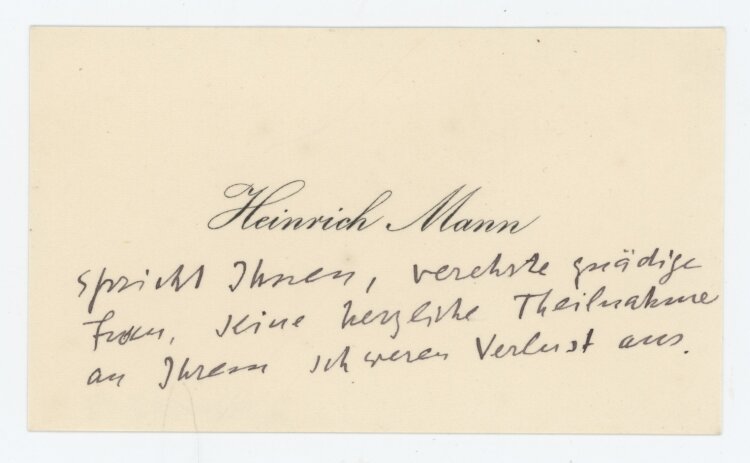 Heinrich Mann
spricht Ihnen, verehrte gnädige
Frau, seine herzliche Theilnahme
an Ihrem schweren Verlust aus.